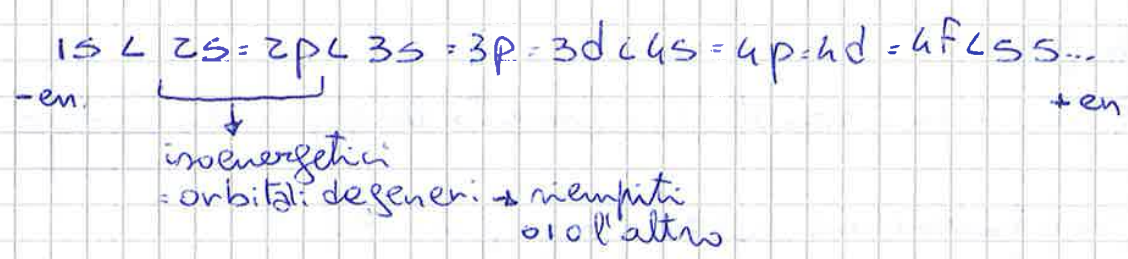 1s < 2s = 2p < 3s = 3p = 3d < 4s = 4p = 4d = 4f < 5s...
-en. + en
isoenergetici
= orbitali degeneri → riempiti
o l'altro